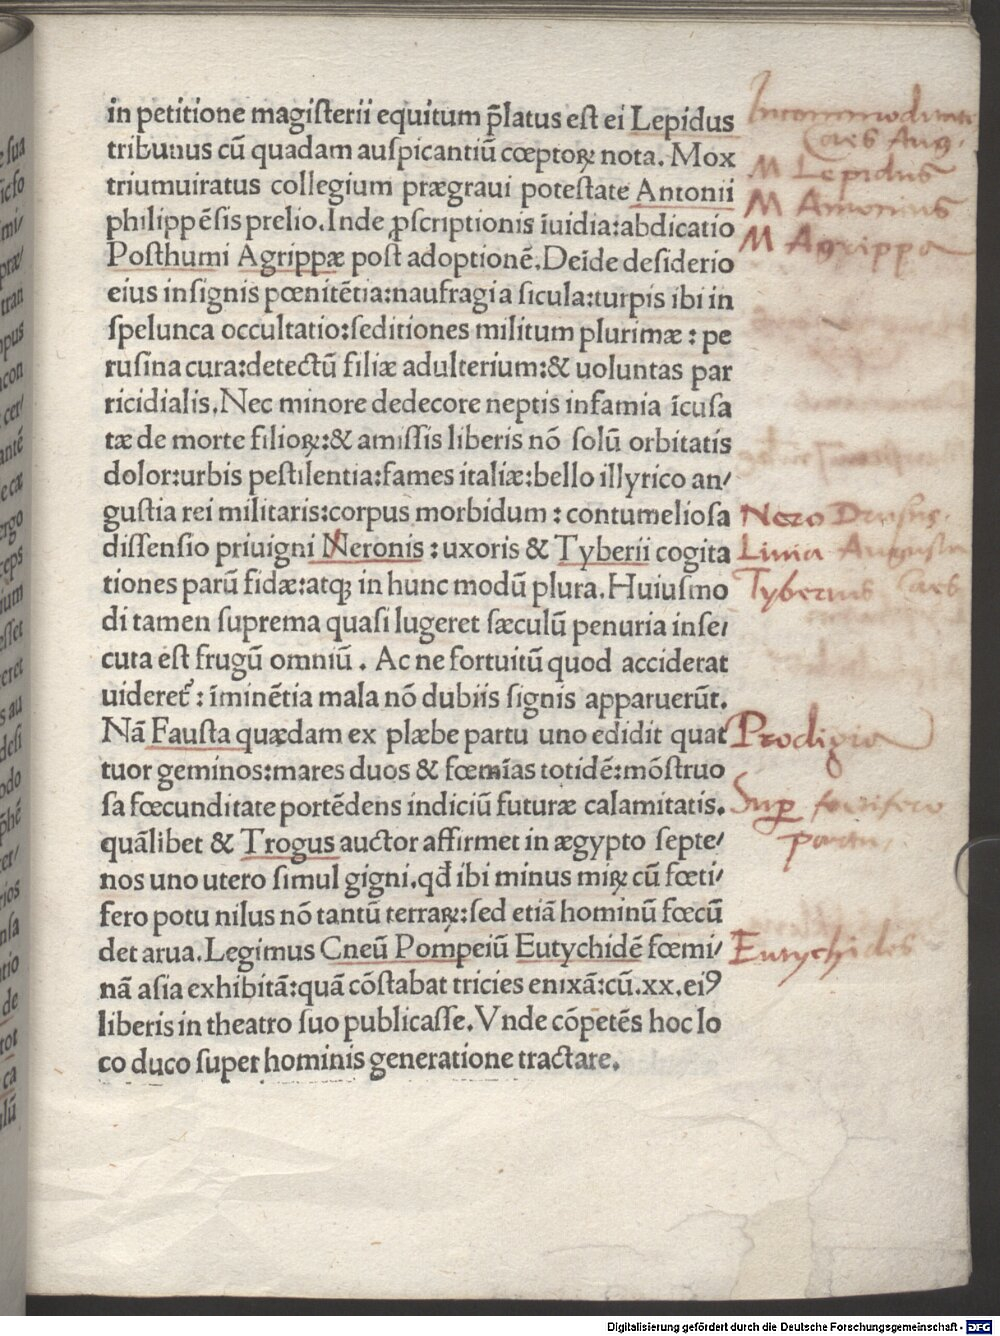 in petitione magiſterii equitum p̄latus eſt ei Lepidus
tribunus cū quadam auſpicantiū cœptoꝝ nota. Mox
triumuiratus collegium prægraui poteſtate Antonii
philippēſis prelio. Inde ꝓſcriptionis īuidia:abdicatio
Poſthumi Agrippæ poſt adoptionē. Deīde deſiderio
eius inſignis pœnitētia:naufragia ſicula:turpis ibi in
ſpelunca occultatio:ſeditiones militum plurimæ: pe
ruſina cura:detectū filiæ adulterium:& uoluntas par
ricidialis. Nec minore dedecore neptis infamia īcuſa
tæ de morte filioꝝ:& amiſſis liberis nō ſolū orbitatis
dolor:urbis peſtilentia:fames italiæ:bello illyrico an/
guſtia rei militaris:corpus morbidum: contumelioſa
diſſenſio priuigni Neronis: uxoris & Tyberii cogita
tiones parū fidæ:atqꝫ in hunc modū plura. Huiuſmo
di tamen ſuprema quaſi lugeret ſæculū penuria inſe/
cuta eſt frugū omniū. Ac ne fortuitū quod acciderat
uideret᷑: īminētia mala nō dubiis ſignis apparuerūt.
Nā Fauſta quædam ex plæbe partu uno edidit quat
tuor geminos:mares duos & fœmīas totidē:mōſtruo
ſa fœcunditate portēdens indiciū futuræ calamitatis.
quālibet & Trogus auctor affirmet in ægypto ſepte/
nos uno utero ſimul gigni.qđ ibi minus miꝝ cū fœti/
fero potu nilus nō tantū terraꝝ:ſed etiā hominū fœcū
det arua. Legimus Cneū Pompeiū Eutychidē fœmi/
nā aſia exhibitā:quā cōſtabat tricies enixā:cū.xx.eiꝰ
liberis in theatro ſuo publicaſſe. Vnde cōpetēs hoc lo
co duco ſuper hominis generatione tractare.
Caes Aug.
M Lepidus
M Antonius
M Agrippa
Nero Druſus.
Liuia Auguſta
Tyberius Caes
Prodigia
Sup fœtifero
partu.
Eutychides
Digitalisierung gefördert durch die Deutsche Forschungsgemeinschaft - DFG